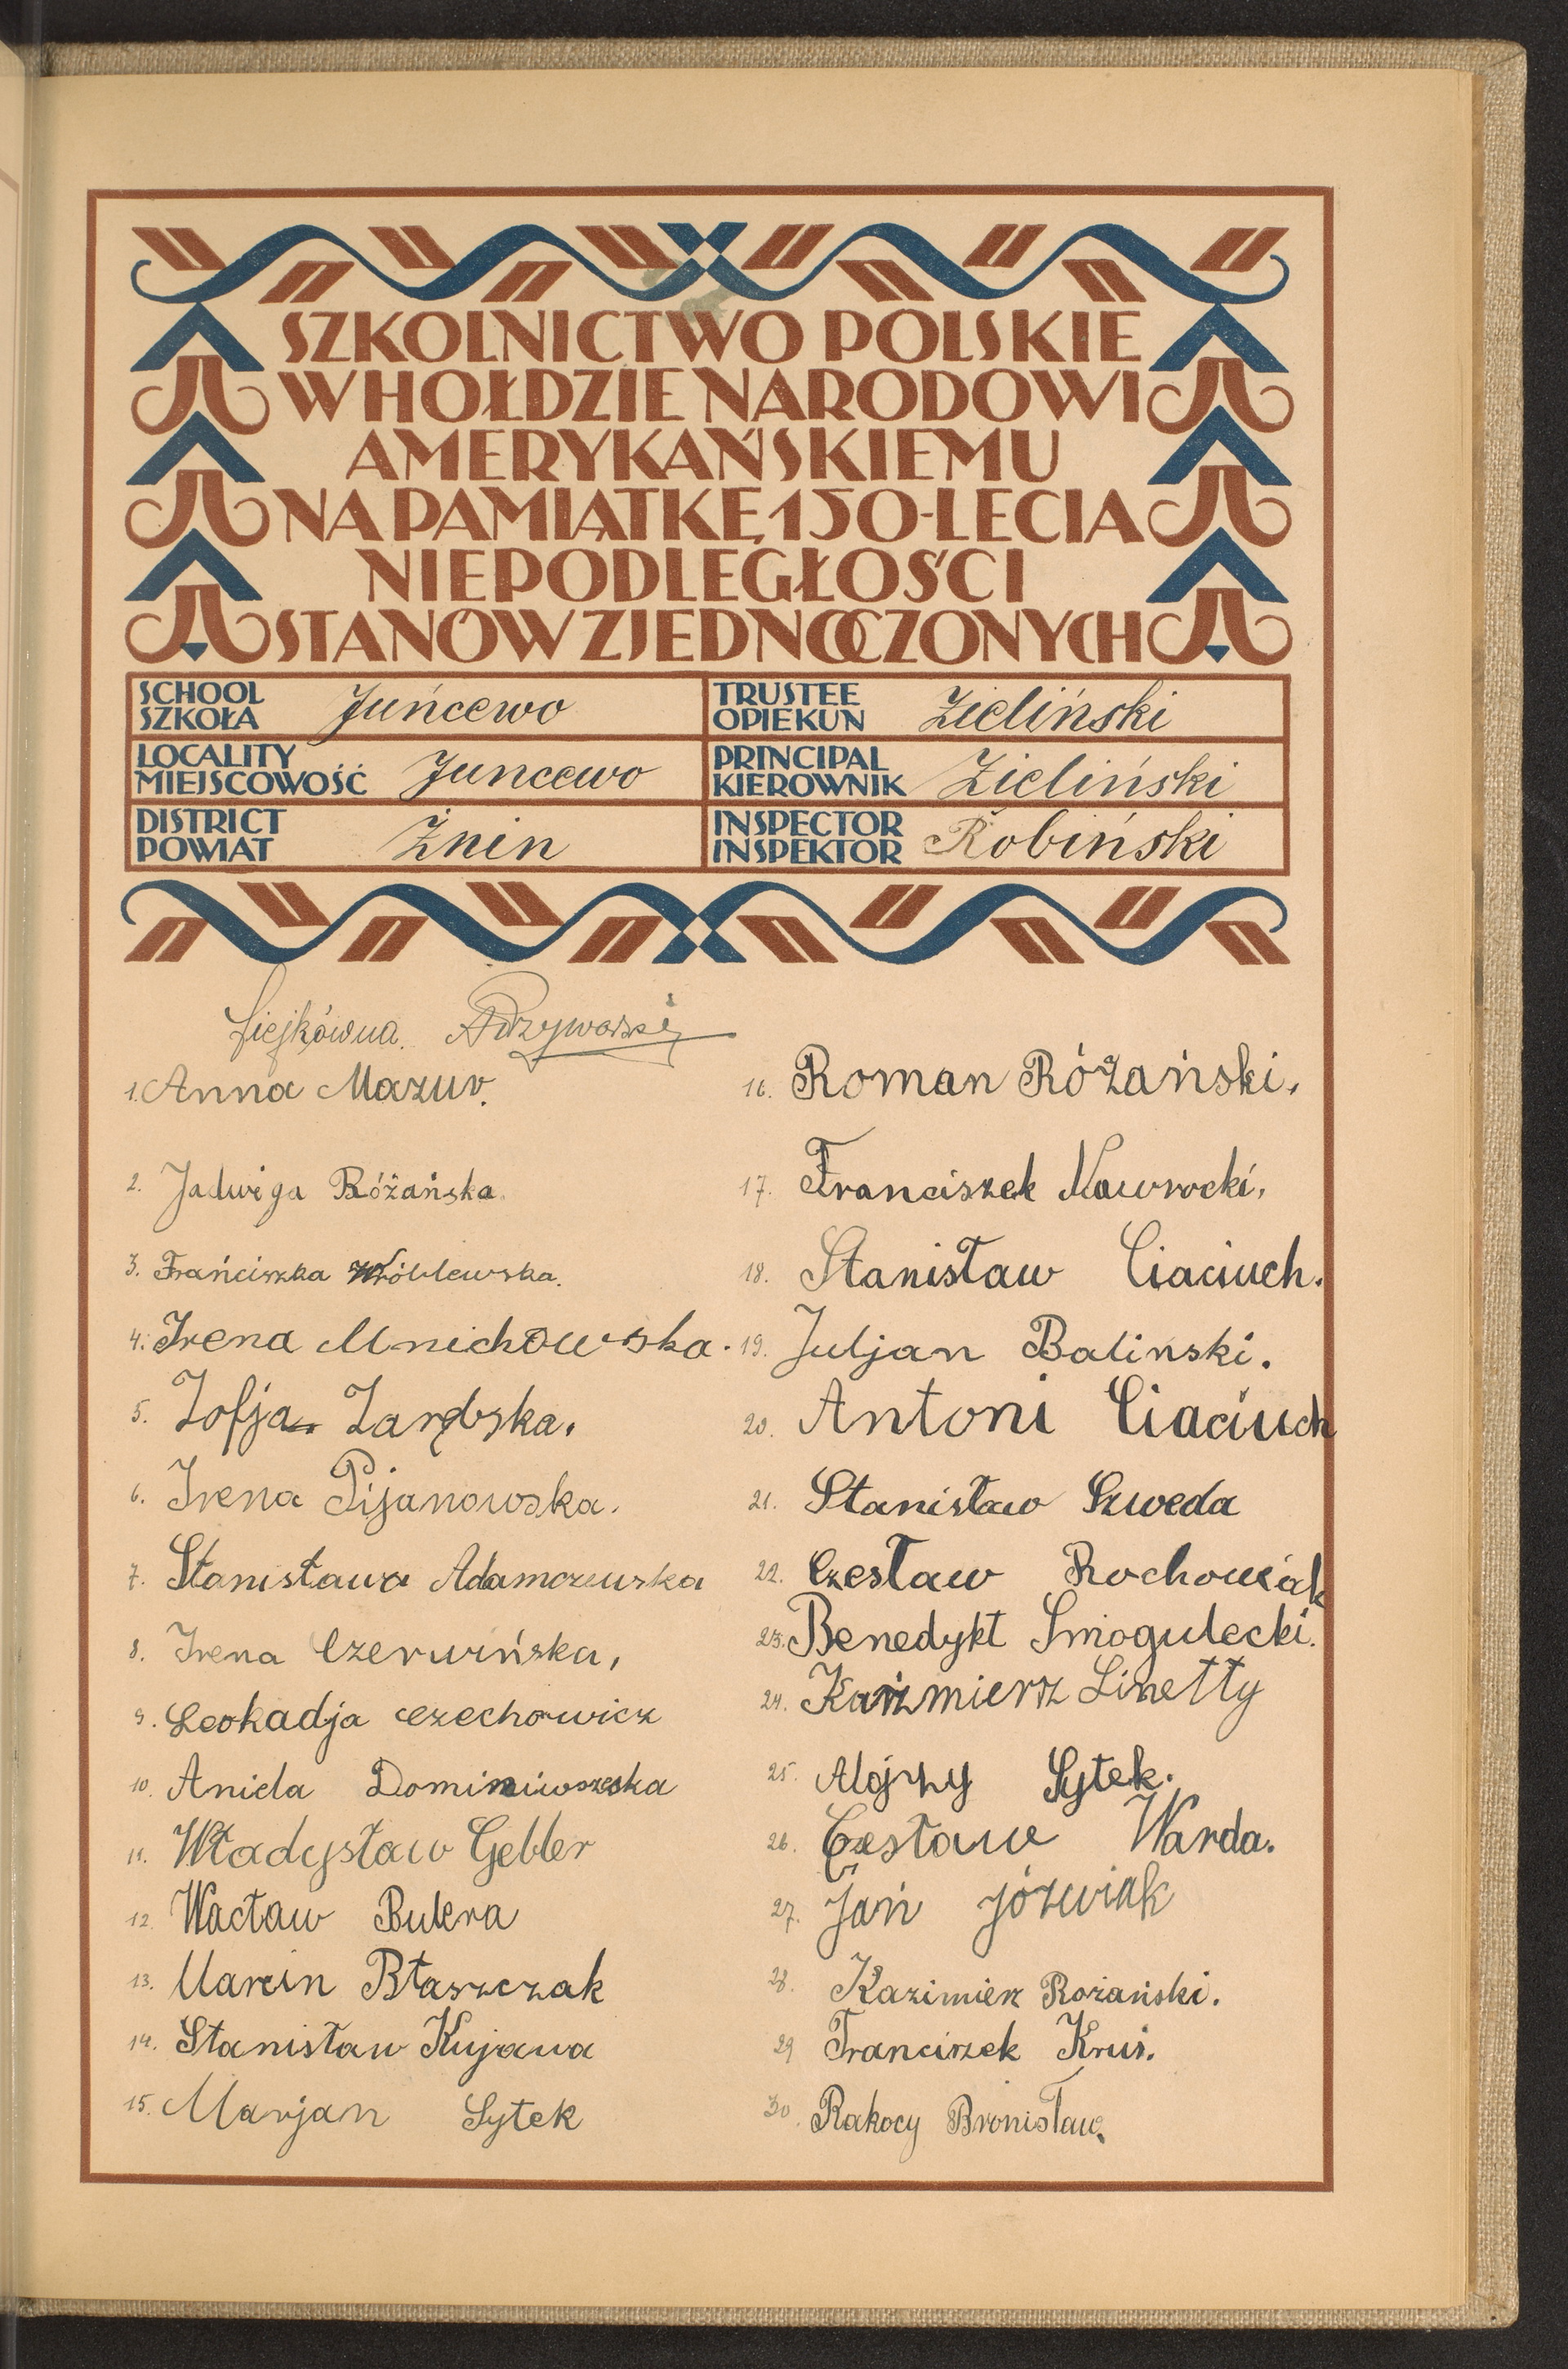 SZKOLNICTWO POLSKIE
W HOŁDZIE NARODOWI
AMERYKAŃSKIEMU
NA PAMIĄTKĘ 150-LECIA
NIEPODLEGŁOŚCI
STANÓW ZJEDNOCZONYCH
SCHOOL
SZKOŁA Juńcewo
TRUSTEE
OPIEKUN Zieliński
LOCALITY
MIEJSCOWOŚĆ Juncewo
PRINCIPAL
KIEROWNIK Zieliński
DISTRICT
POWIAT Żnin
INSPECTOR
INSPEKTOR Robiński
1. Anna Mazur.
2. Jadwiga Różańska.
3. Frańciszka Wróblewska.
4. Irena Mnichowska.
5. Zofja Zarębska.
6. Irena Pijanowska.
7. Stanisława Adamczewska
8. Irena Czerwińska,
9. Leokadja Czechowicz
10. Aniela
11. Władysław Gebler
12. Wacław Bulera
13. Marcin Błaszczak
14. Stanisław Kujawa
15. Marjan Sytek
16. Roman Różański.
17. Franciszek Nawrocki.
18. Stanisław Ciaciuch.
19. Juljan Balinski.
20. Antoni Ciaciuch
21. Stanisław Szweda
22. Czesław Rochowiak
23. Benedykt Smogulecki.
24. Kaźmierz Linetty
25. Alojzy Sytek.
26. Czesław Warda.
27. Jań Józwiak
28. Kazimierz Rożański.
29 Franciszek Kruś.
30. Rakocy Bronisław.